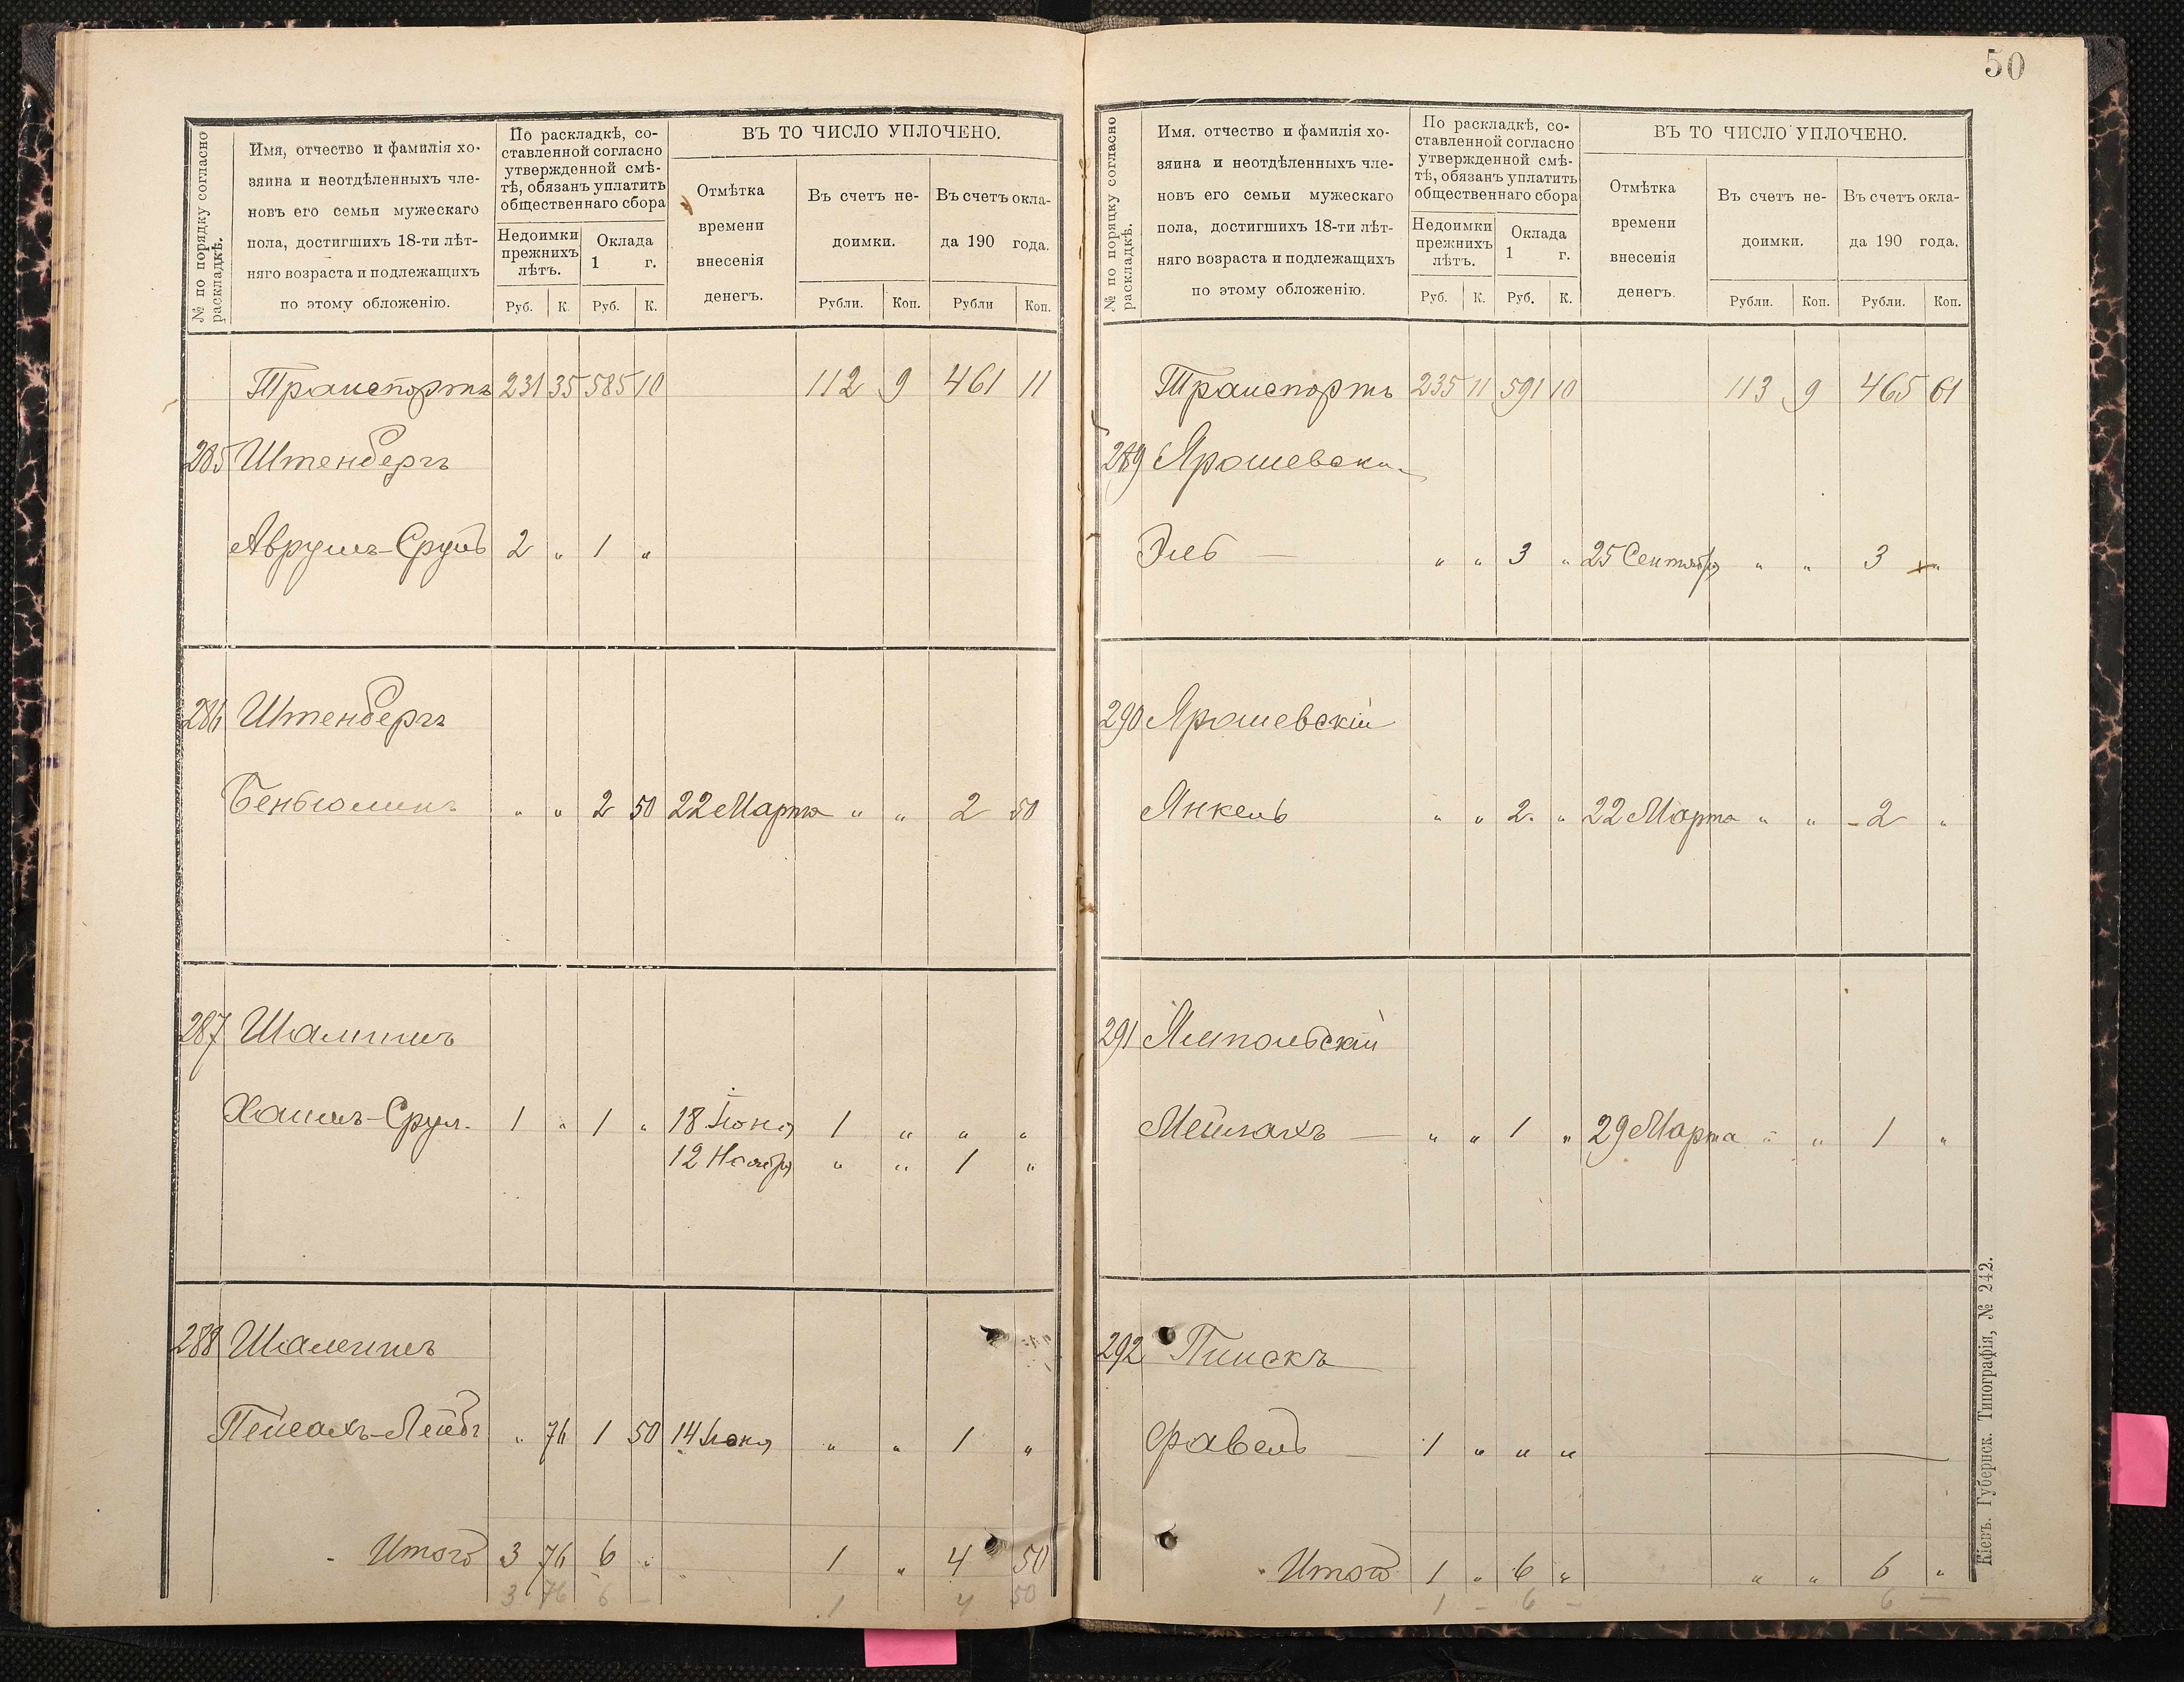 № по порядку согласно
раскладкѣ.
Имя, отчество и фамилія хо-
зяина и неотдѣленныхъ чле-
новъ его семьи мужескаго
пола, достигшихъ 18-ти лѣт-
няго возраста и подлежащихъ
по этому обложенію.
По раскладкѣ, со-
ставленной согласно
утвержденной смѣ-
тѣ, обязанъ уплатить
общественнаго сбора
Недоимки
прежнихъ
лѣтъ.
Оклада
1 г.
Руб. К. Руб. К.
ВЪ ТО ЧИСЛО УПЛОЧЕНО.
Отмѣтка
времени
внесенія
денегъ.
Въ счетъ не-
доимки.
Рубли. Коп.
Въ счетъ окла-
да 190 года.
Рубли Коп.
Транспортъ 231 35 585 10 112 9 461 11
285 Штенбергъ
Аврумъ-Сруль 2 " 1 "
286 Штенбергъ
Беньюминъ " " 2 50 22 Марта " " 2 50
287
Срул. 1 " 1 " 18 Іюня 1 " " "
12 Ноября " " 1 "
288
Пейсахъ-Лейбъ " 76 1 50 14 Іюня " " 1 "
Итого 3 76 6 " 1 " 4 50
3 76 6 – 1 4 50
50
№ по порядку согласно
раскладкѣ.
Имя. отчество и фамилія хо-
зяина и неотдѣленныхъ чле-
новъ его семьи мужескаго
пола, достигшихъ 18-ти лѣт-
няго возраста и подлежащихъ
по этому обложенію.
По раскладкѣ, со-
ставленной согласно
утвержденной смѣ-
тѣ, обязанъ уплатить
общественнаго сбора
Недоимки
прежнихъ
лѣтъ.
Оклада
1 г.
Руб. К. Руб. К.
ВЪ ТО ЧИСЛО УПЛОЧЕНО.
Отмѣтка
времени
внесенія
денегъ.
Въ счетъ не-
доимки.
Рубли. Коп.
Въ счетъ окла-
да 190 года.
Рубли. Коп.
Транспортъ 235 11 591 10 113 9 465 61
289 Ярошевскій
Эль — " " 3 " 25 Сентября " " 3 "
290 Ярошевскій
Янкель " " 2 " 22 Марта " " 2 "
291 Ямпольскій
Мейлахъ — " " 1 " 29 Марта " " 1 "
292 Пинскъ
Фавель — 1 " " " —
Итого 1 " 6 " " " 6 "
1 – 6 – 6 –
Кіевъ. Губернск. Типографія, № 242.